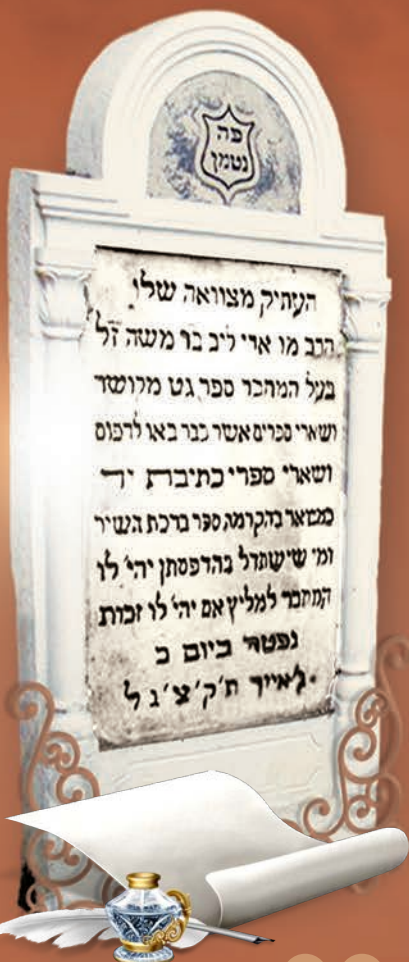 פה
נטמן
העתיק מצוואה שלו
הרב מו ארי ליב בר משה זל
בעל המחבר ספר גט מקושר
ושארי ספרים אשר כבר באו לדפוס
ושארי ספרי כתיבת יד
כמבואר בהקדמה ספר ברכת השיר
ומי שישתדל בהדפסתן יהי' לו
המחבר למליץ אם יהי' לו זכות
נפטר ביום ב
אייר ת'ק'צ'ג ל